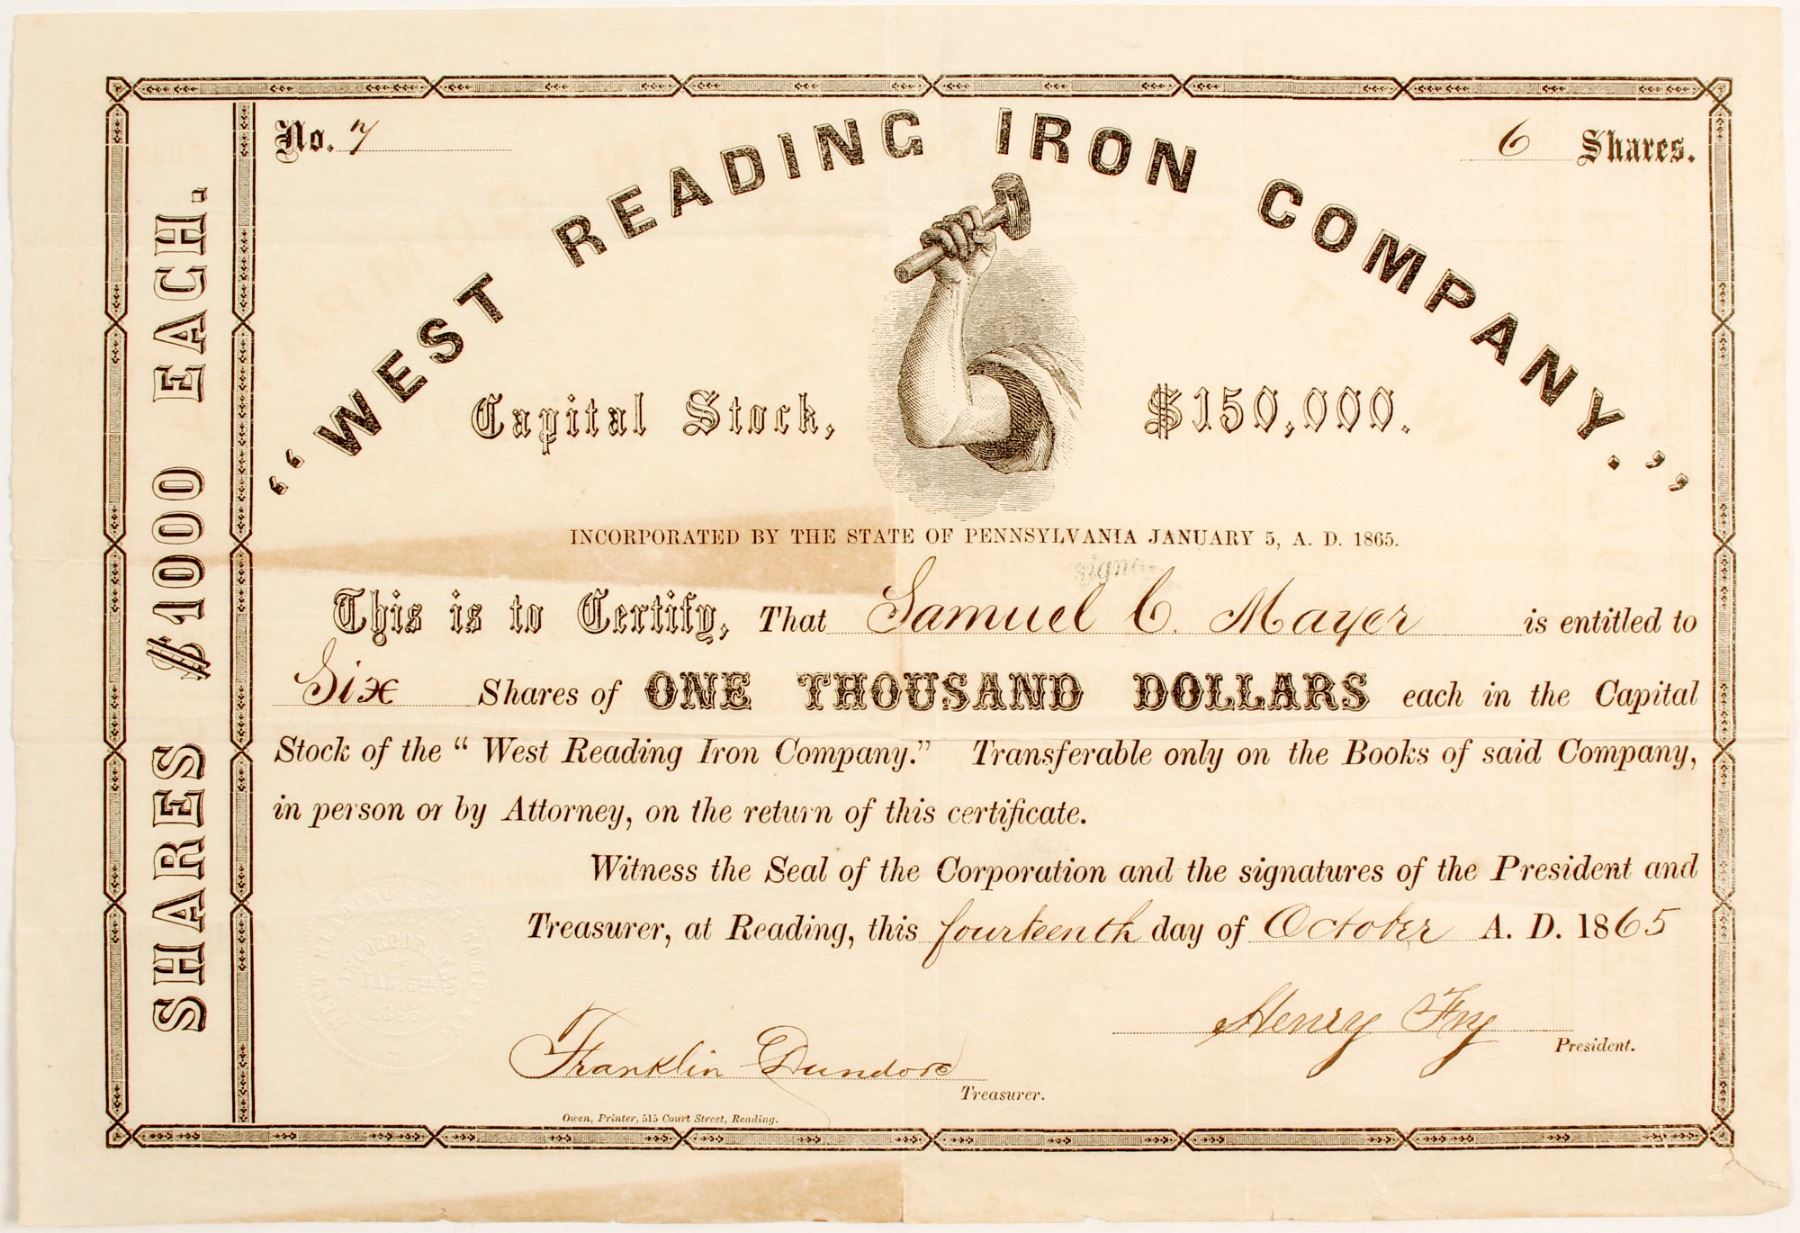 No. 7
6 Shares.
"WEST READING IRON COMPANY."
Capital Stock, $150,000.
INCORPORATED BY THE STATE OF PENNSYLVANIA JANUARY 5, A. D. 1865.
This is to Certify, That Samuel C. Mayer is entitled to
Six Shares of ONE THOUSAND DOLLARS each in the Capital
Stock of the "West Reading Iron Company." Transferable only on the Books of said Company,
in person or by Attorney, on the return of this certificate.
Witness the Seal of the Corporation and the signatures of the President and
Treasurer, at Reading, this fourteenth day of October A. D. 1865
Henry Fry
President.
Franklin Dundore
Treasurer.
Owen, Printer, 515 Court Street, Reading.
SHARES $1000 EACH.
INCORPORATED
JAN. 5th
1865